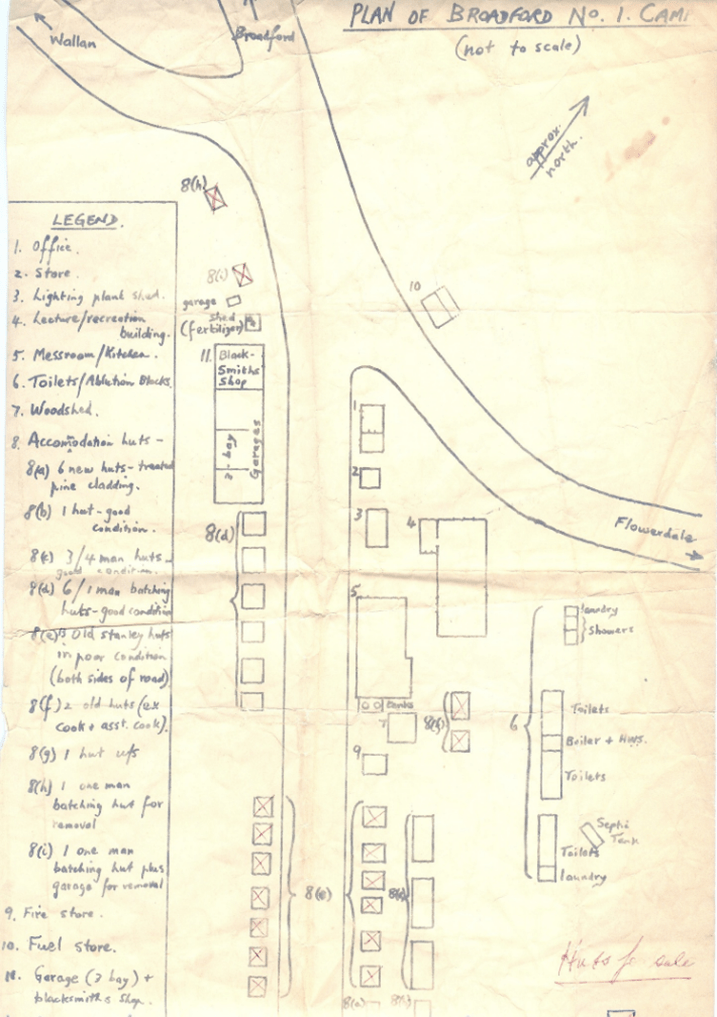 PLAN OF BROADFORD No. 1. CAM
(not to scale)
Wallan
Broadford
approx.
north.
LEGEND.
1. Office.
2. Store.
3. Lighting plant shed.
4. Lecture/recreation
building.
5. Messroom/Kitchen.
6. Toilets/Ablution Blocks.
7. Woodshed.
8. Accomodation huts -
8(a) 6 new huts - treated
pine cladding.
8(b) 1 hut - good
condition.
8(c) 3/4 man huts -
good condition.
8(d) 6/1 man batching
huts - good condition
8(e) 13 old stanley huts
in poor condition
(both sides of road)
8(f) 2 old huts (ex
cook + asst. cook).
8(g) 1 hut u/s
8(h) 1 one man
batching hut for
removal
8(i) 1 one man
batching hut plus
garage for removal
9. Fire store.
10. Fuel store.
11. Garage (3 bay) +
blacksmiths shop.
8(h)
8(i)
garage
shed
(fertilizer)
11.
Black-
Smiths
Shop
3-bay
Garages
8(d)
8(e)
10
Flowerdale
1
2
3
4
5
tanks
7
8(f)
9
6
laundry
Showers
Toilets
Boiler + H.W.S.
Toilets
Septic
Tank
Toilets
laundry
Huts for sale